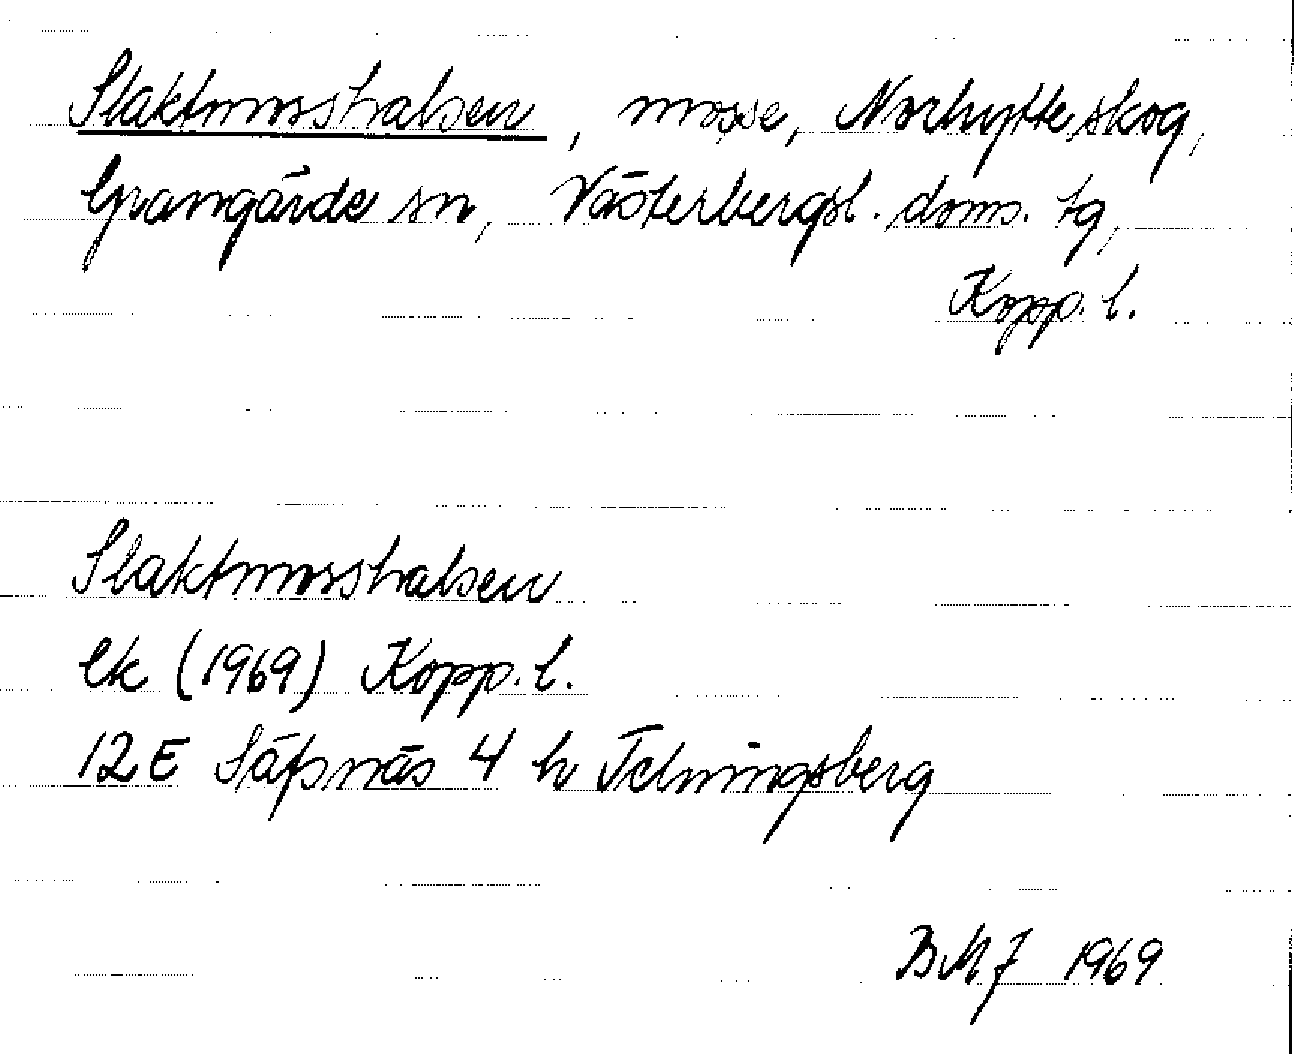 Slaktmosshalsen, mosse, Norhytteskog,
Grangärde sn, Västerbergsl. doms. tg,
Kopp. l.
Slaktmosshalsen
Ek (1969) Kopp. l.
12E Säfsnäs 4 h Telningsberg
BMJ 1969